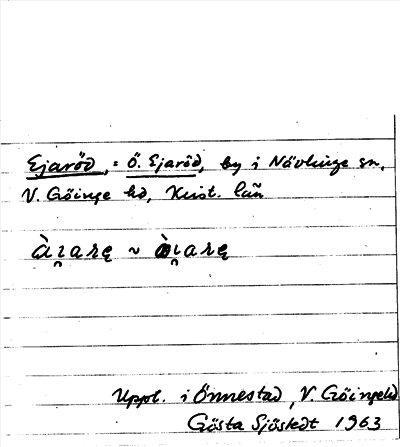 Ejaröd, = Ö. Ejaröd, by i Nävlinge sn,
V. Göinge hd, Krist. län
Uppt. i Önnestad, V. Göingehd
Gösta Sjöstedt 1963